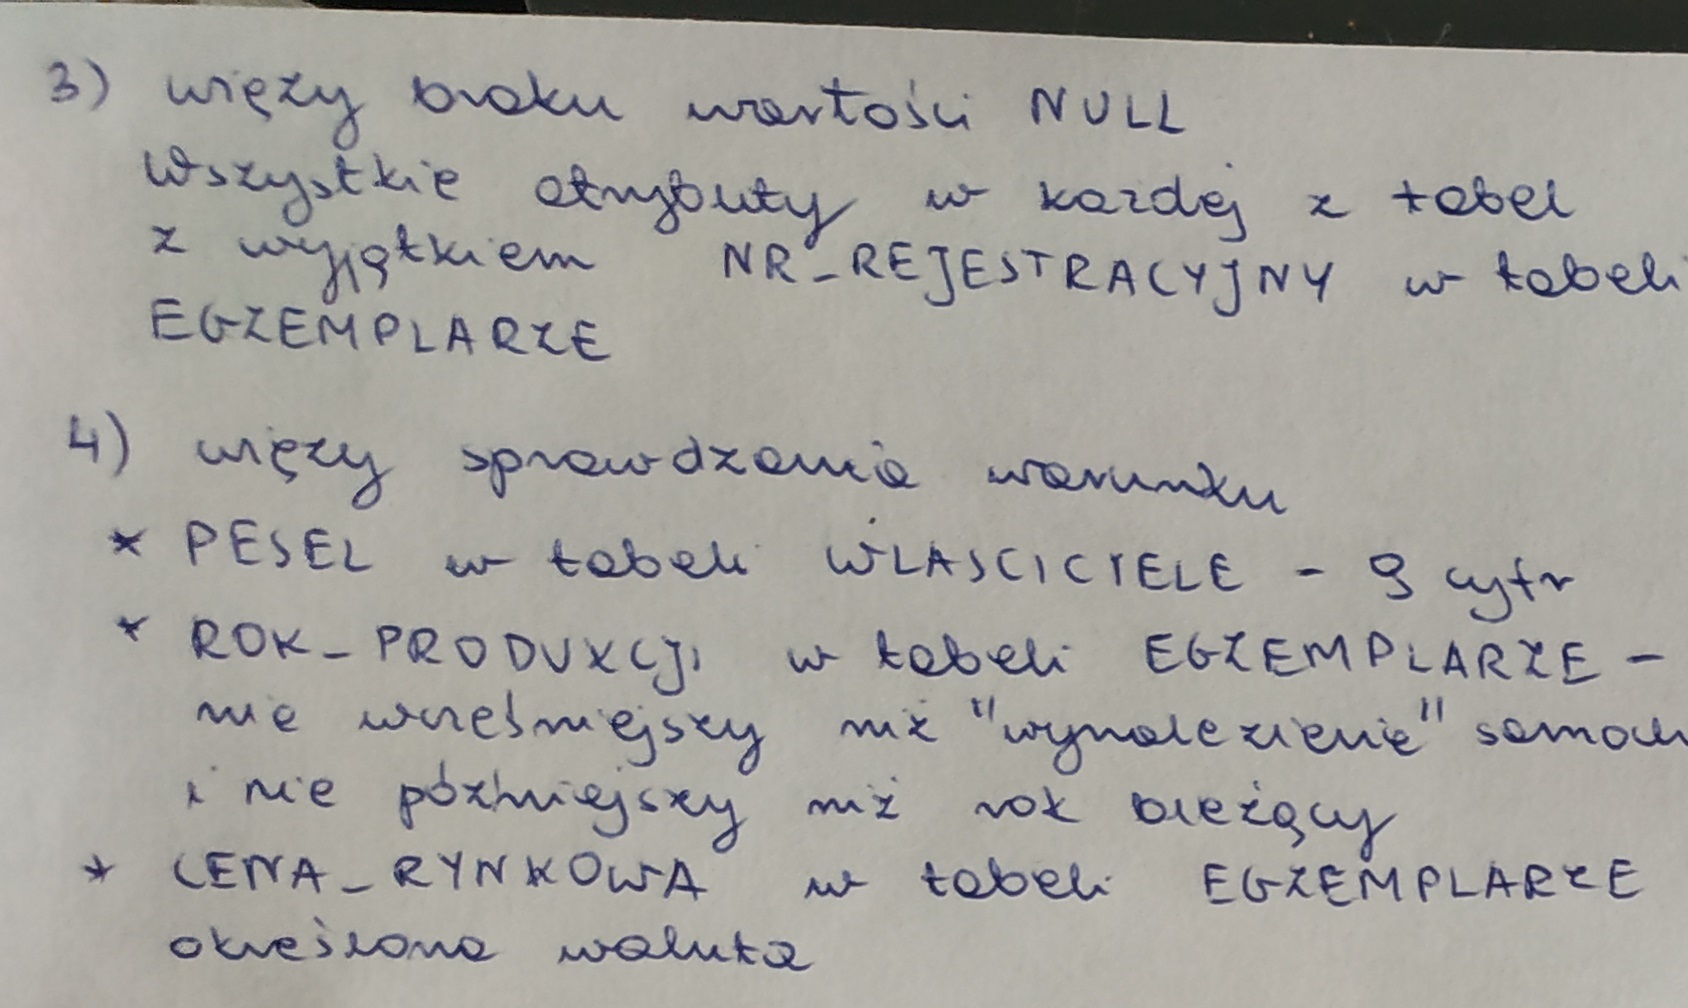 3) więzy braku wartości NULL
Wszystkie atrybuty w każdej z tabel
z wyjątkiem NR_REJESTRACYJNY w tabeli
EGZEMPLARZE
4) więzy sprawdzania warunku
* PESEL w tabeli WLASCICIELE - 9 cyfr
* ROK_PRODUKCJI w tabeli EGZEMPLARZE -
nie wcześniejszy niż "wynalezienie" samoch
i nie późniejszy niż rok bieżący
* CENA_RYNKOWA w tabeli EGZEMPLARZE
określona waluta